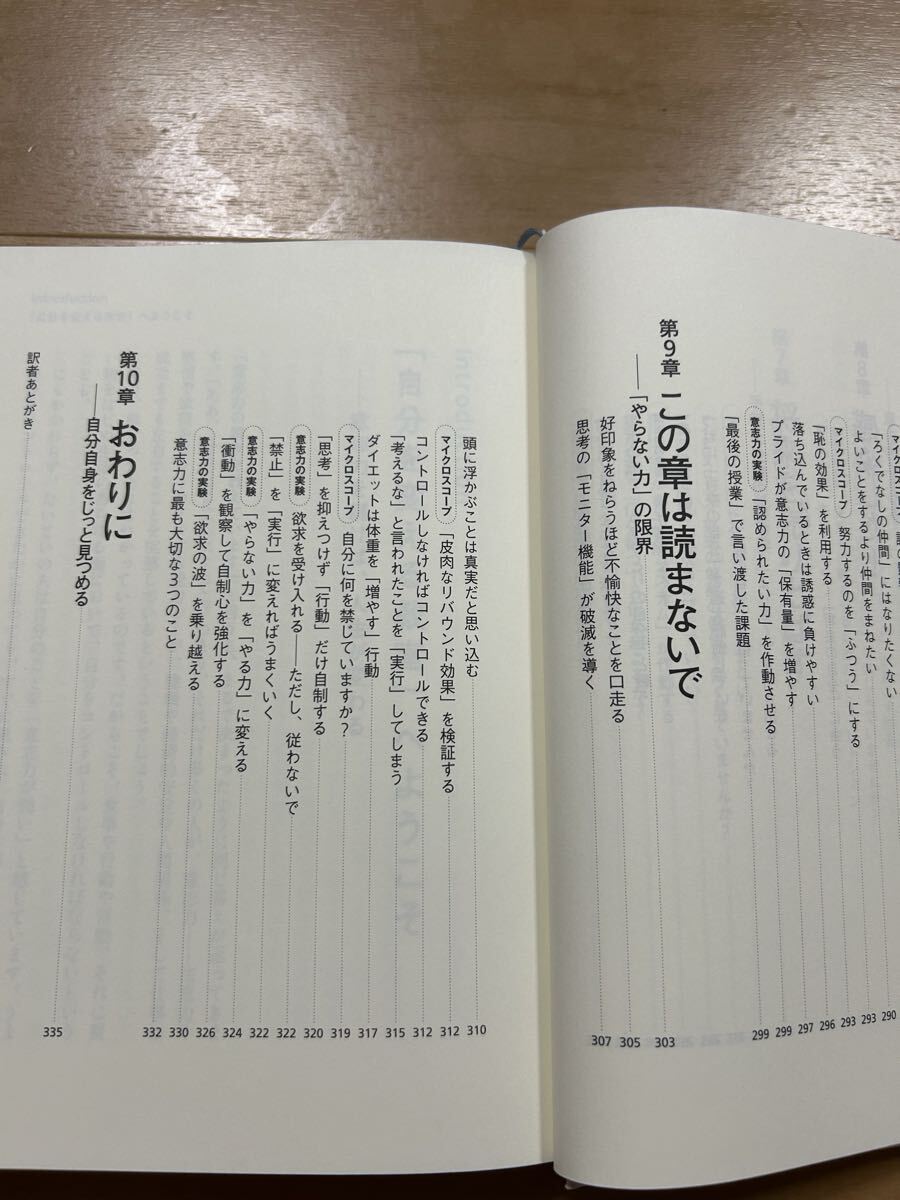 「ろくでなしの仲間」にはなりたくない
よいことをするより仲間をまねたい 290
マイクロスコープ 努力するのを「ふつう」にする 293
「恥の効果」を利用する 293
落ち込んでいるときは誘惑に負けやすい 296
プライドが意志力の「保有量」を増やす 297
意志力の実験 「認められたい力」を作動させる 299
「最後の授業」で言い渡した課題 299
第9章 この章は読まないで
――「やらない力」の限界 303
好印象をねらうほど不愉快なことを口走る 305
思考の「モニター機能」が破滅を導く 307
頭に浮かぶことは真実だと思い込む 310
マイクロスコープ 「皮肉なリバウンド効果」を検証する 312
コントロールしなければコントロールできる 312
「考えるな」と言われたことを「実行」してしまう 315
ダイエットは体重を「増やす」行動 317
マイクロスコープ 自分に何を禁じていますか? 319
「思考」を抑えつけず「行動」だけ自制する 320
意志力の実験 欲求を受け入れる――ただし、従わないで 322
「禁止」を「実行」に変えればうまくいく 322
意志力の実験 「やらない力」を「やる力」に変える 324
「衝動」を観察して自制心を強化する 326
意志力の実験 「欲求の波」を乗り越える 330
意志力に最も大切な3つのこと 332
第10章 おわりに
――自分自身をじっと見つめる 335
訳者あとがき